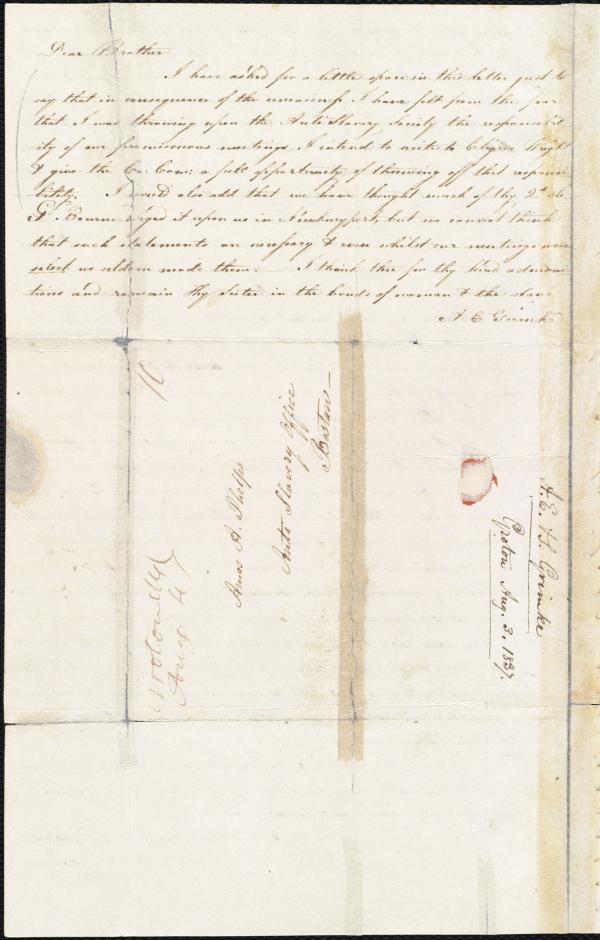 Dear Brother
I have asked for a little space in this letter just to
say that in consequence of the
that I was throwing upon the Anti Slavery Society the responsibil
ity of our promiscuous meetings, I intend to write to Elizur Wright
& give the Ex. Com: a pub opportunity of throwing off that responsi
bility. I would also add that we have thought much of thy 2d
G. Bourne urged it upon us in Newburyport, but we cannot think
that such statements are necessary & even whilst our meetings were
select we seldom made them. I thank thee for thy kind admoni
tions and remain thy Sister in the bonds of woman & the slave
A E Grimké
10
Groton Ms
Aug 4
Amos A. Phelps
Anti Slavery Office
Boston
A. E. & S. Grimke
Groton Aug. 3. 1837.